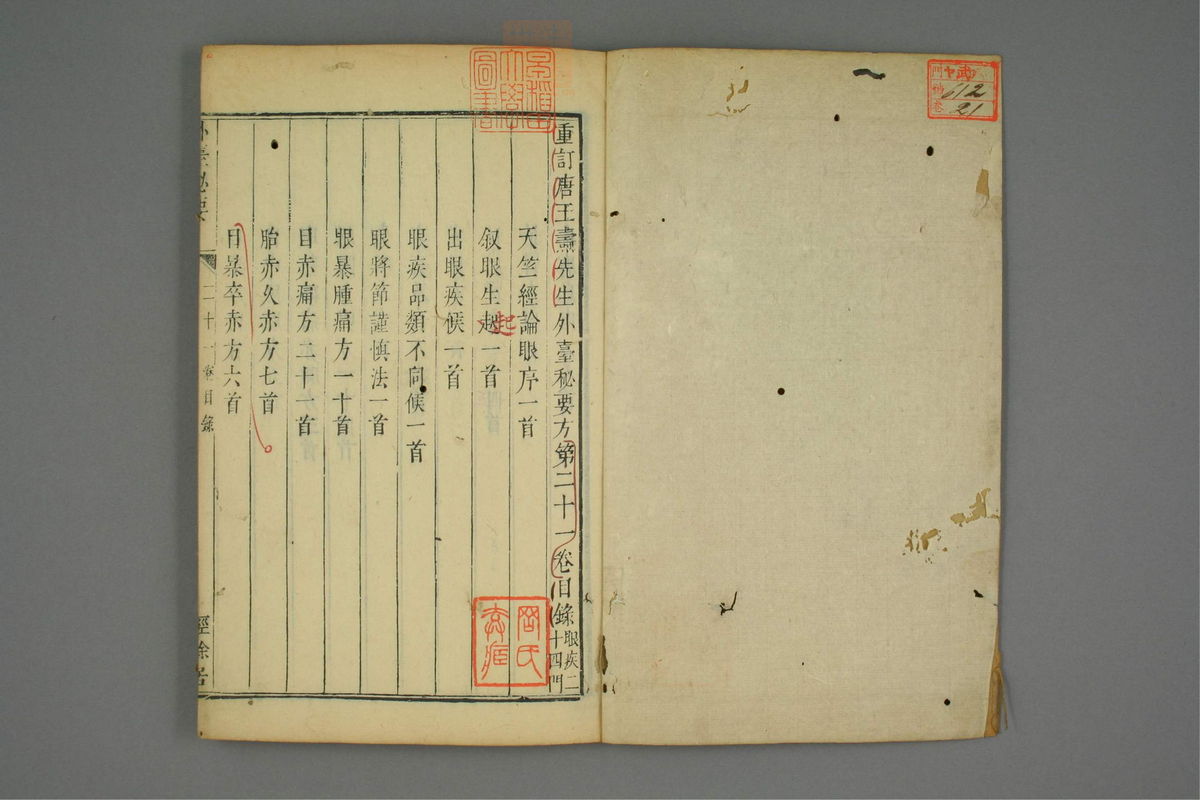 重訂唐王燾先生外臺秘要方第二十一卷目錄眼疾二十四門
天竺經論眼序一首
叙眼生起一首
起
出眼疾候一首
眼疾品類不同候一首
眼將節謹慎法一首
眼暴腫痛方一十首
目赤痛方二十一首
胎赤久赤方七首
目暴卒赤方六首
二十一卷目錄
經餘居
早稻田大學圖書
612
21